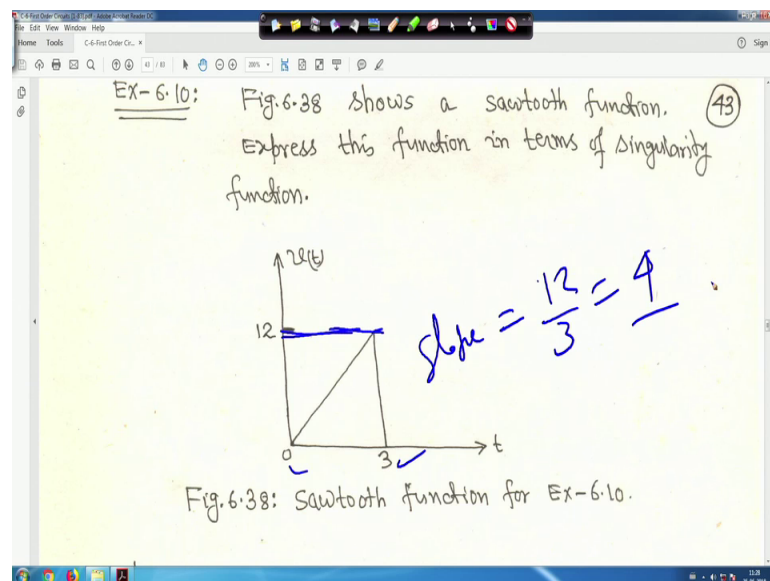 C-6-First Order Circuits [1-83].pdf - Adobe Acrobat Reader DC
File Edit View Window Help
Home Tools C-6-First Order Cir... × Sign
43 / 83 200%
Ex-6.10: Fig.6.38 shows a sawtooth function. 43
Express this function in terms of singularity
function.
v(t)
12
slope = 12/3 = 4
0 3 t
Fig.6.38: Sawtooth function for Ex-6.10.
11:28